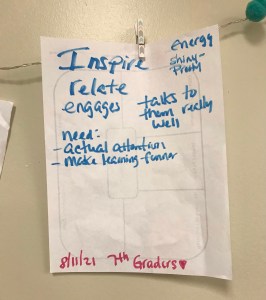 Inspire
relate
engages
need:
- actual attention
- make learning funner
energy
shiny-
Pretty
talks to
them really
well
8/11/21 7th Graders♥